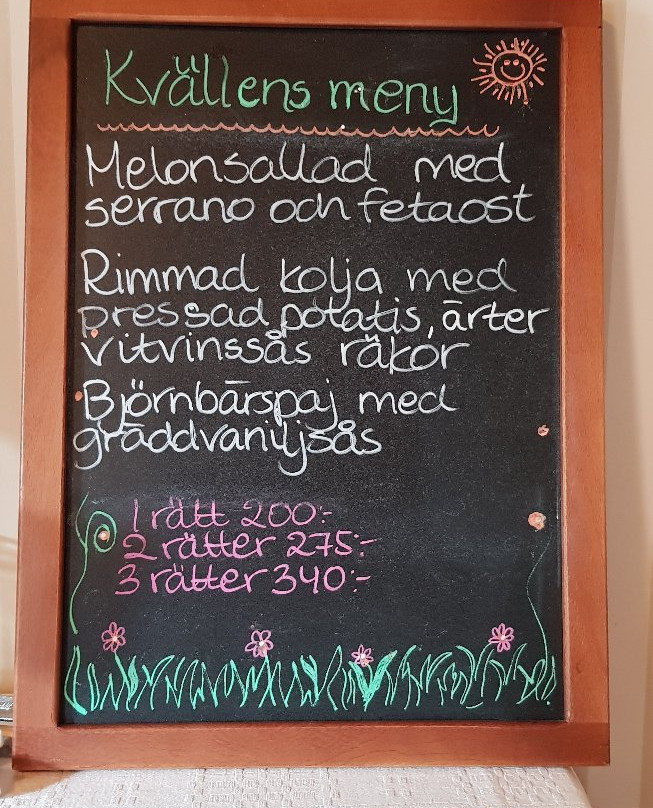 Kvällens meny
Melonsallad med
serrano och fetaost
Rimmad kolja med
pressad potatis, ärter
vitvinssås räkor
Björnbärspaj med
gräddvaniljsås
1 rätt 200:-
2 rätter 275:-
3 rätter 340:-